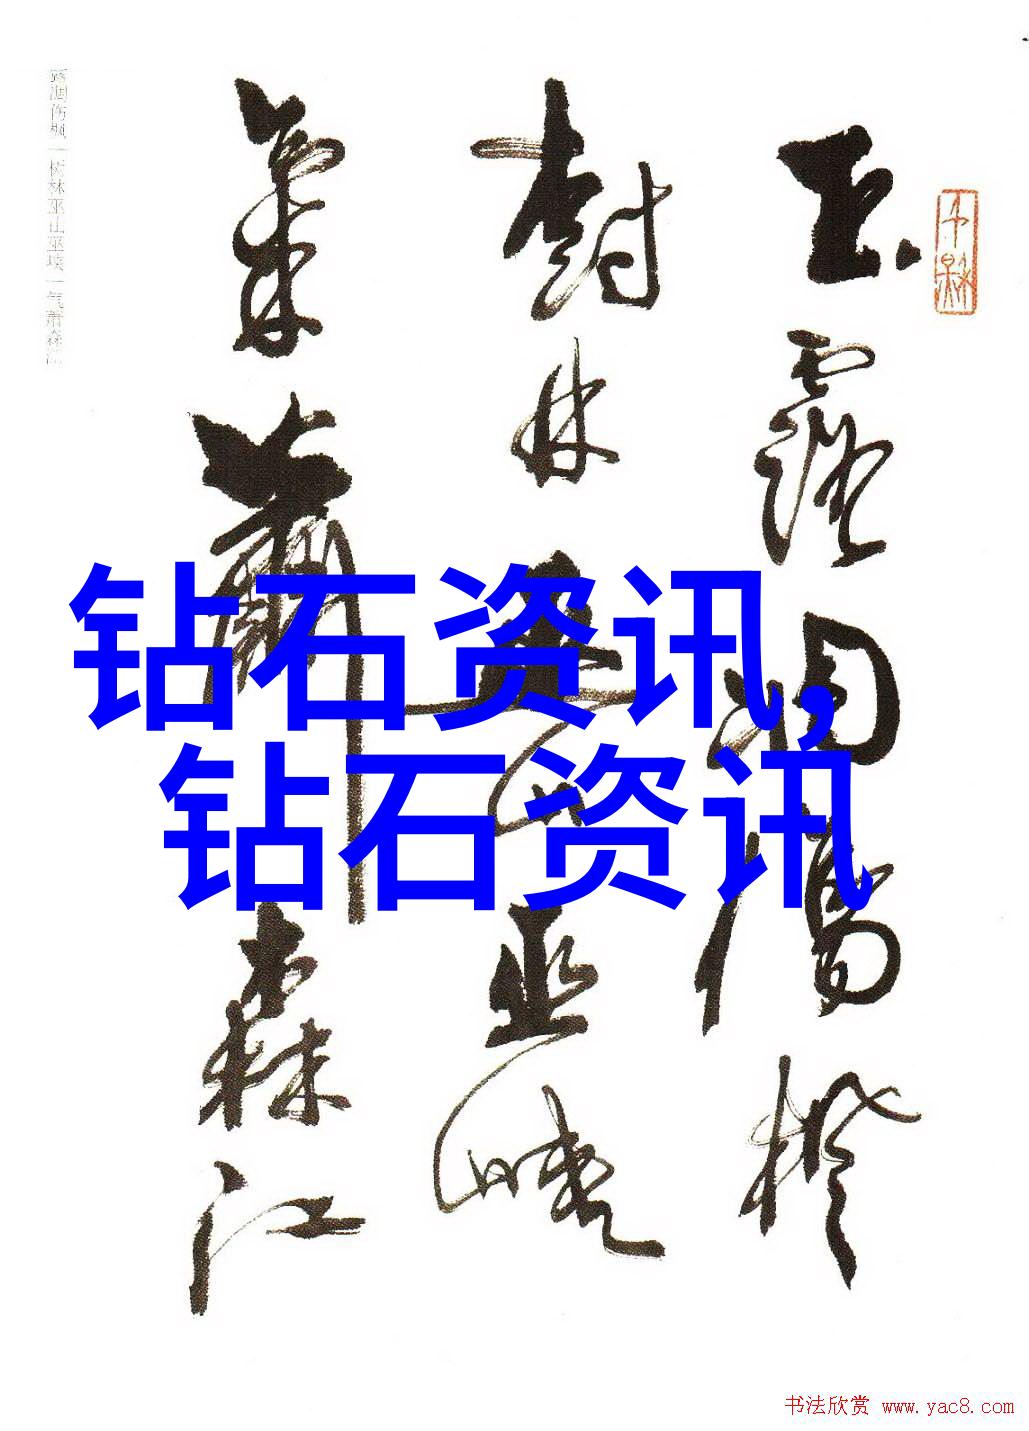 玉露凋伤枫
树林巫山巫峡
气萧森江
钻石资讯,
钻石资讯
书法欣赏 www.yac8.com